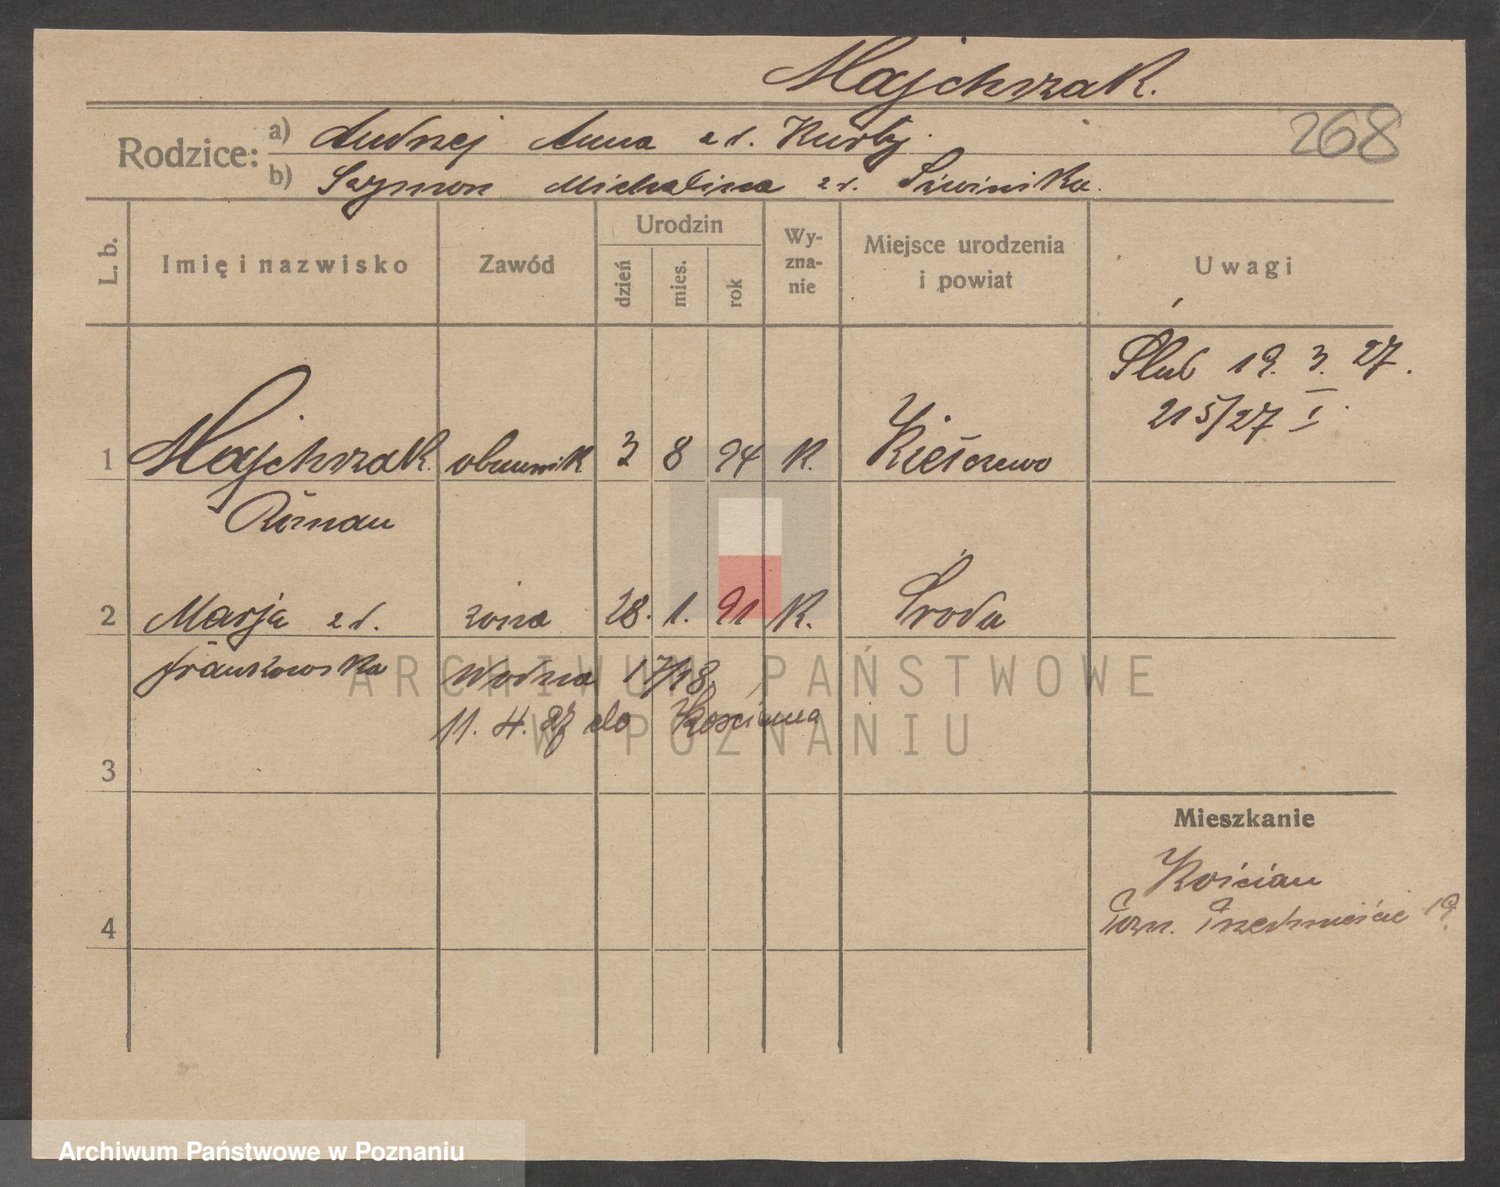 Majchrzak.
268
Rodzice: a) Andrzej Anna zd. Kurby.
b) Szymon Michalina zd. Śliwińska.
L. b.
Imię i nazwisko
Zawód
Urodzin
dzień
mies.
rok
Wy-
zna-
nie
Miejsce urodzenia
i powiat
Uwagi
Ślub 19. 3. 27.
215/27 I.
1 Majchrzak obuwnik 3 8 94 K. Kiełczewo
Roman
2 Marja zd. żona 28. 1. 91 K. Środa
Frankowska Wodna 17/18,
11. 4. 27 do Kościana
3
4
Mieszkanie
Kościan
Pozn. Przedmieście 19
ARCHIWUM PAŃSTWOWE
W POZNANIU
Archiwum Państwowe w Poznaniu